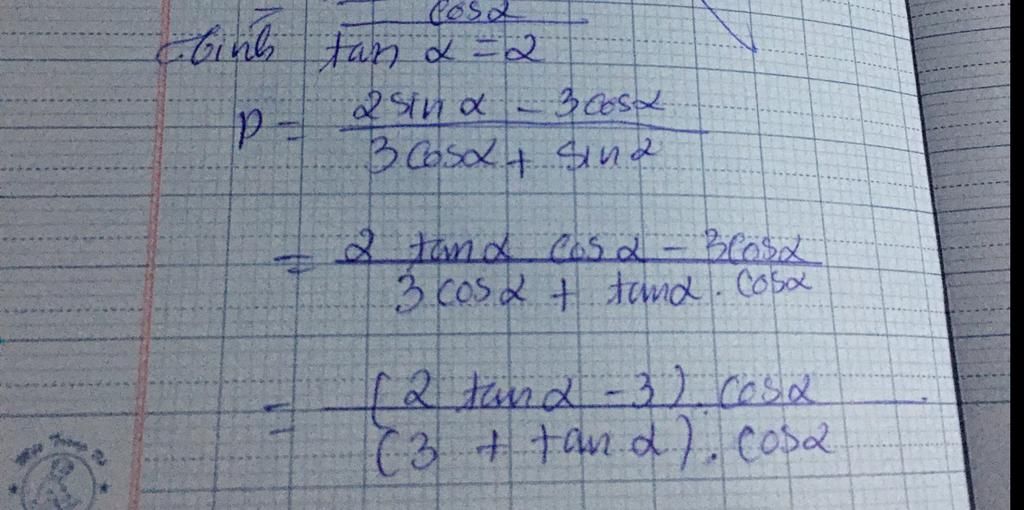 cosα
tan α = 2
P = \frac{2 sin α - 3 cosα}{3 cosα + sin α}
= \frac{2 tanα cos α - 3cosα}{3 cosα + tanα . cosα}
= \frac{(2 tanα - 3) . cosα}{(3 + tan α) . cosα}